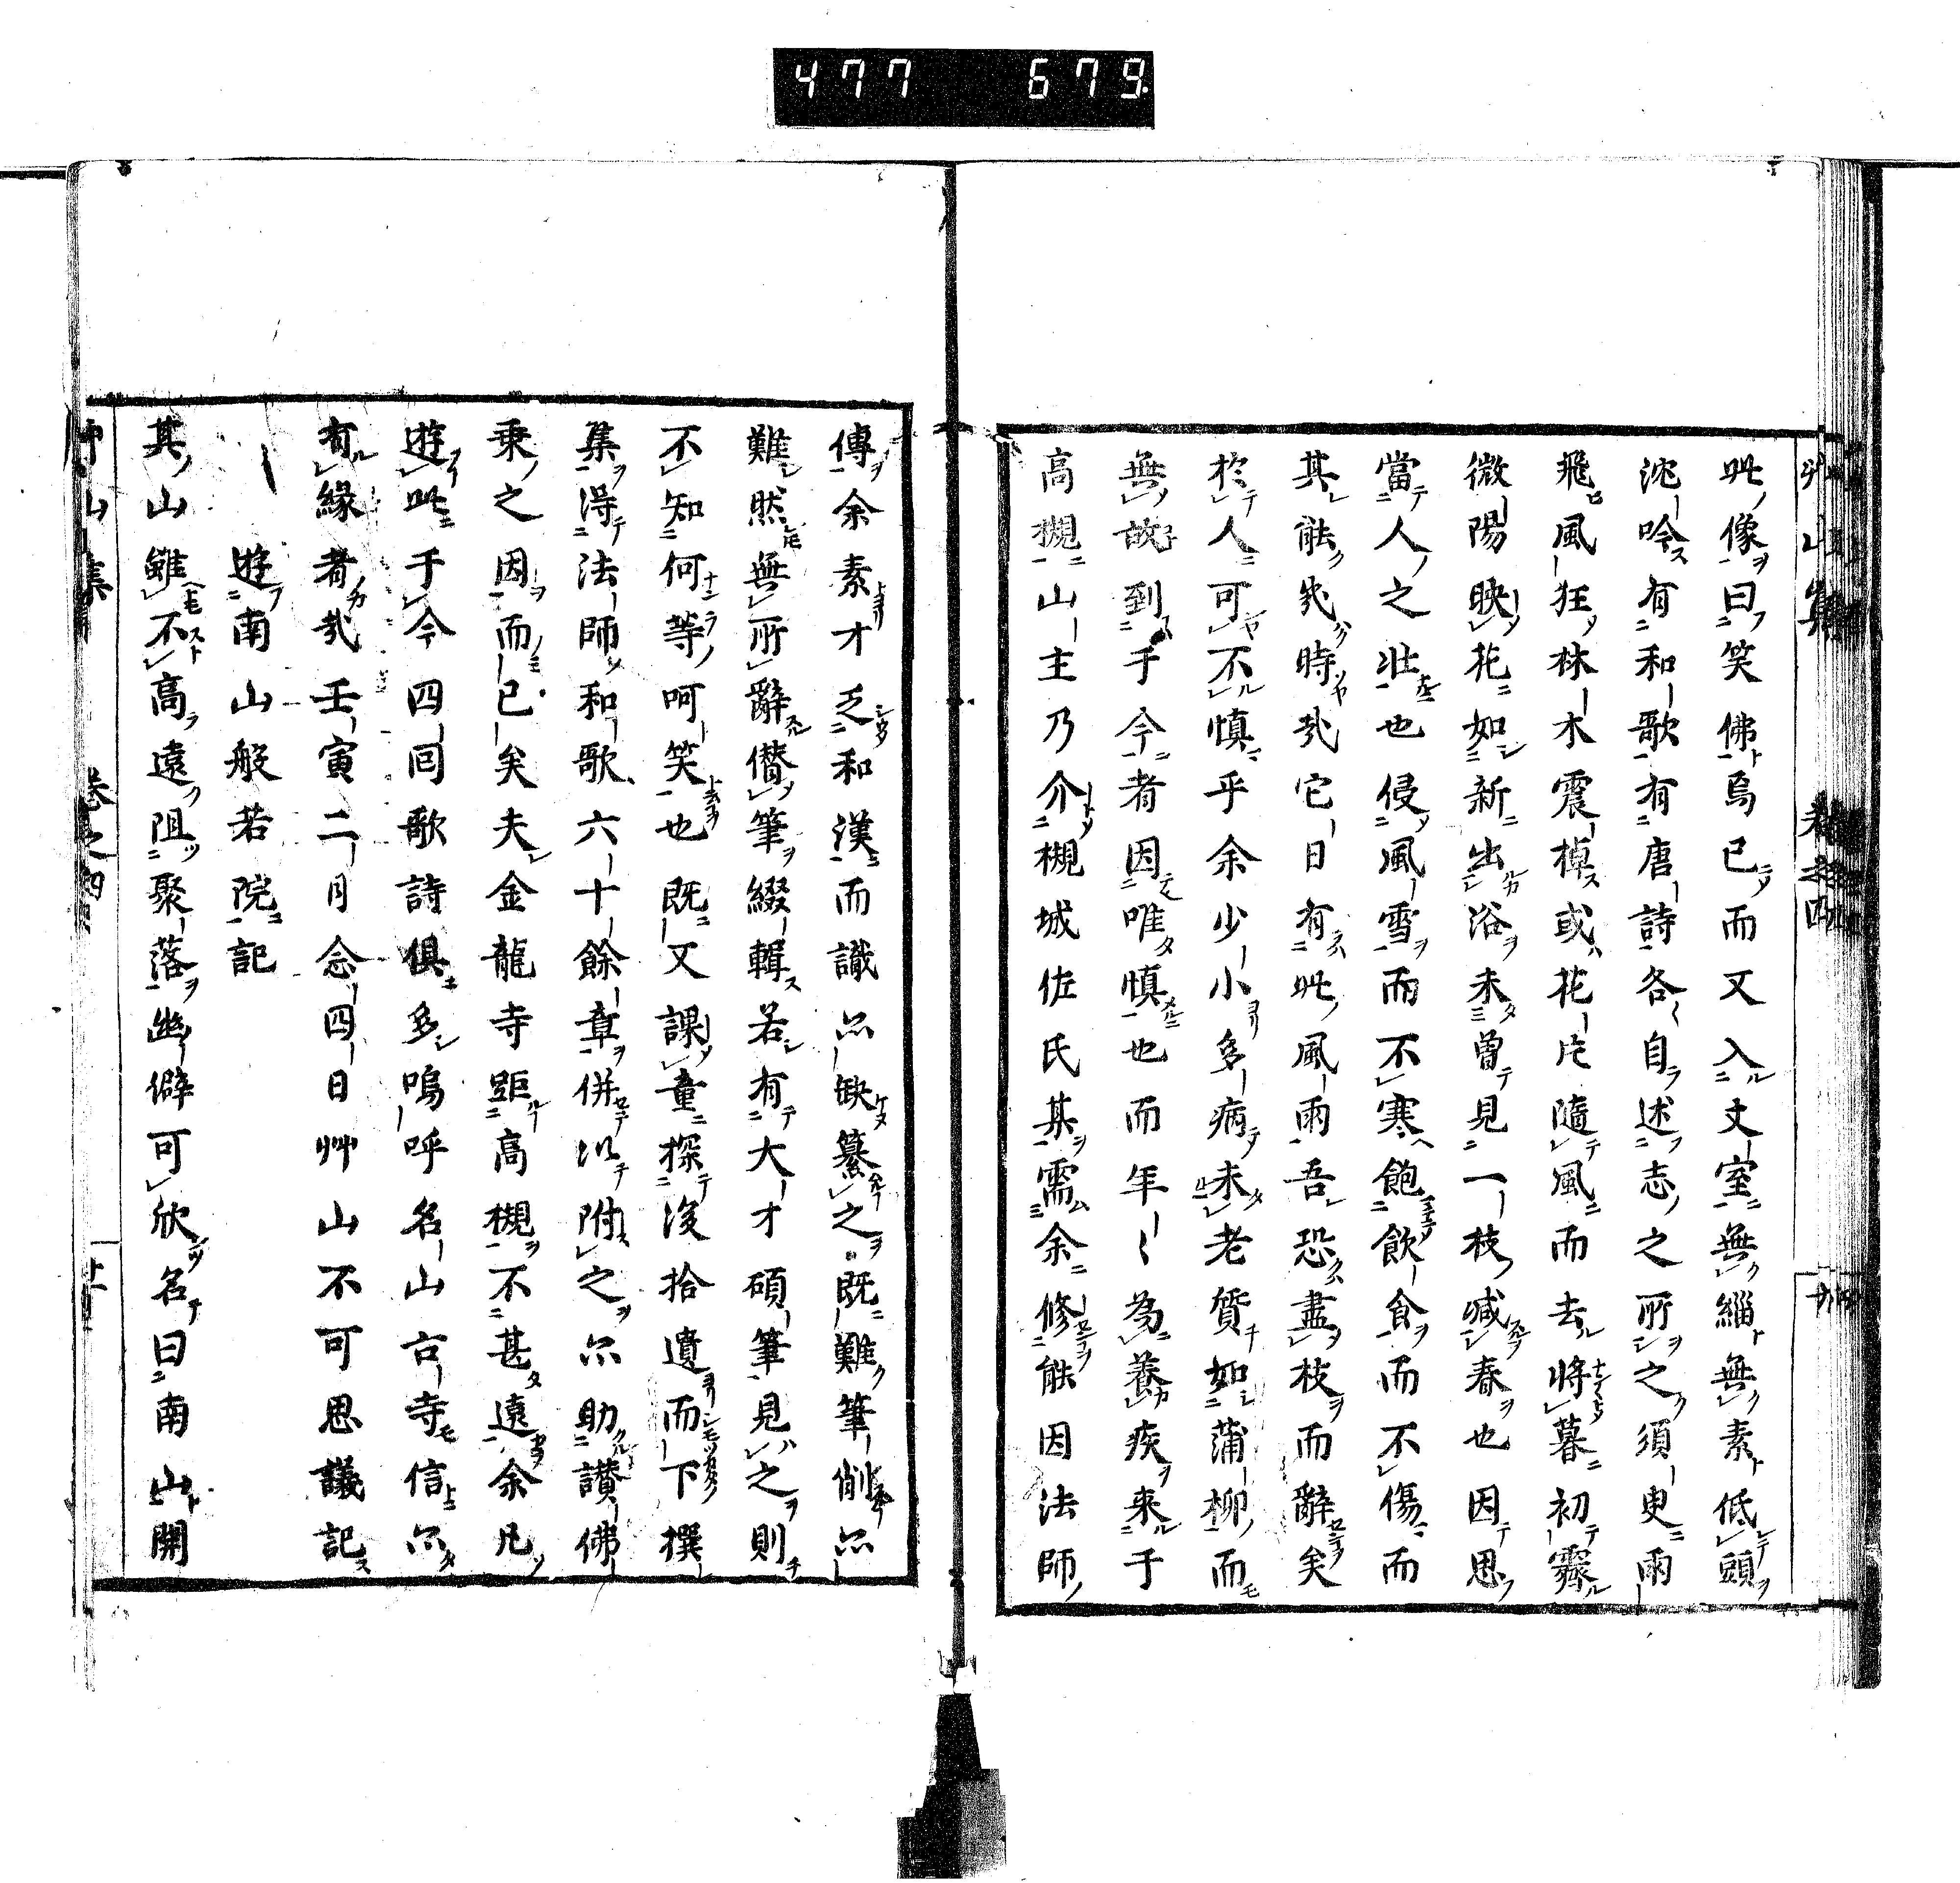 477 679
此像曰笑佛烏已而又入丈室無緇無素低頭
沈吟有和歌有唐詩各自述志之所之須臾雨
飛風狂林木震掉或花片隨風而去將暮初霽
微陽映花如新出浴未曾見一枝減春也因思
當人之壯也侵風雪而不寒飽飲食而不傷而
其能幾時哉它日有此風雨吾恐盡枝而辭矣
於人可不慎乎余少小多病未老質如蒲柳而
無故到于今者因唯慎也而年〻為養疾來于
高槻山主乃介槻城佐氏某需余修能因法師
傳余素才乏和漢而識亦缺纂之既難筆削亦
難然無所辭僭筆綴輯若有大才碩筆見之則
不知何等呵笑也既又課童探淩拾遺而下撰
集得法師和歌六十餘章併以附之亦助讃佛
乘之因而已矣夫金龍寺距高槻不甚遠余凡
遊此于今四回歌詩俱多嗚呼名山古寺信亦
有緣者哉壬寅二月念四日艸山不可思議記
遊南山般若院記
其山雖不高遠阻聚落幽僻可欣名曰南山開
艸山集 卷之四